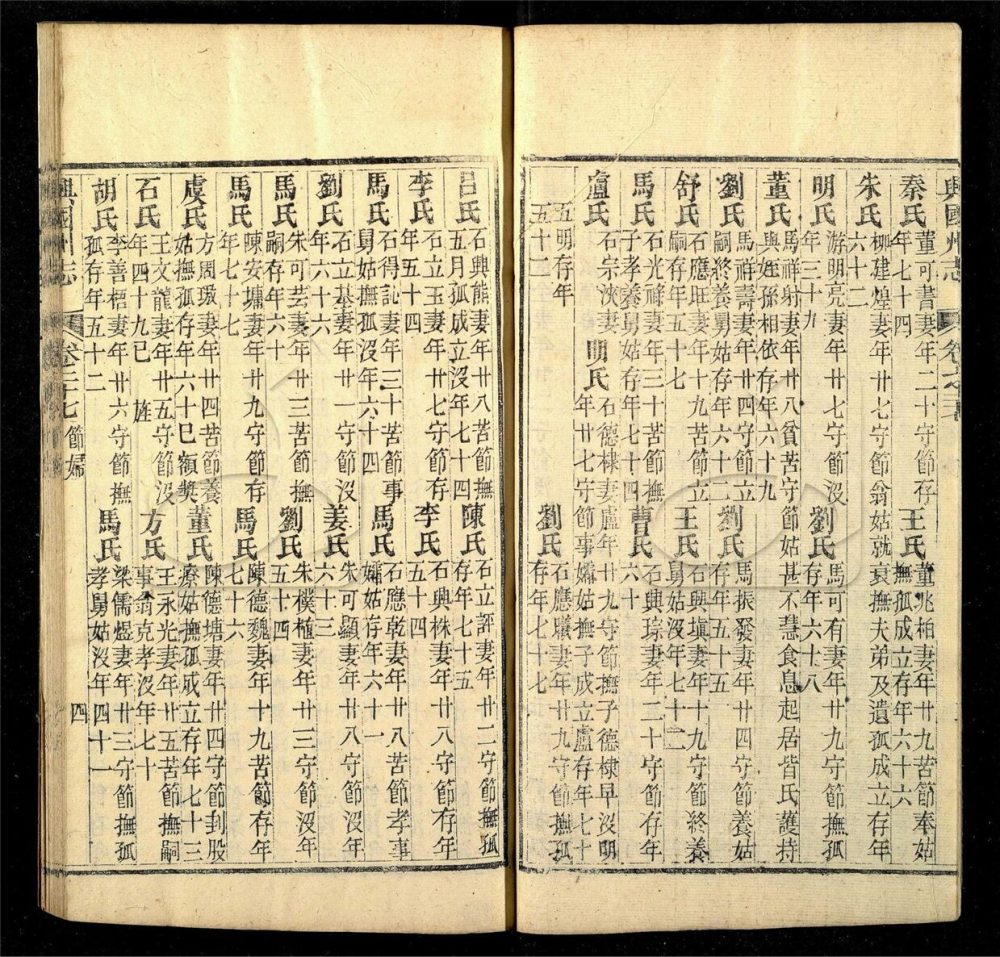 興國州志
秦氏 董可書妻年二十守節存年七十四 王氏 董兆柏妻年廿九苦節奉姑撫孤成立存年六十六
朱氏 柳建煌妻年廿七守節翁姑就衰撫夫弟及遺孤成立存年六十二
明氏 游明亮妻年廿七守節沒年三十九 劉氏 馬可有妻年 守節撫孤存年六十八
董氏 馬祥射妻年廿八貧苦守節姑甚不慧食息起居皆氏護持與姪孫相依存年六十九
劉氏 馬祥壽妻年廿四守節立嗣終養舅姑存年六十二 劉氏 馬振發妻年廿四守節養姑存年五十五
舒氏 石應旺妻年 節立嗣存年五十七 王氏 石興塡妻年十九守節終養舅姑沒年七十二
馬氏 石光祥妻年三十苦節撫子孝養舅姑存年七十四 曹氏 石興琮妻年二十守節存年六十
盧氏 石宗浹妻 明氏 石德棣妻盧年廿九守節撫子德棣早沒明年廿七守節事孀姑撫子成立盧存年七十
五明存年五十二 劉氏 石應曦妻年廿九守節撫孤存年五十七
呂氏 石興熊妻年廿八苦節撫五月孤成立沒年七十四 陳氏 石立評妻年廿二守節撫孤存年七十五
李氏 石立玉妻年廿七守節存年五十四 李氏 石興株妻年廿八守節存年五十四
馬氏 石得訨妻年三十苦節事舅姑撫孤沒年六十四 馬氏 石應乾妻年廿八苦節孝事孀姑存年六十一
劉氏 石立基妻年廿一守節沒年六十六 姜氏 朱可顯妻年廿八守節沒年六十三
馬氏 朱可芸妻年三苦節撫嗣存年六十 劉氏 朱樸植妻年廿三守節沒年五十四
馬氏 陳安墉妻年廿九守節存年七十七 馬氏 陳德魏妻年十九苦節存年七十六
虞氏 方周璈妻年廿四苦節養姑撫孤存年六十已額獎 董氏 陳德塘妻年廿四守節刲股療姑撫孤成立存年七十三
石氏 王文龍妻年廿五守節沒年四十九已旌 方氏 王永光妻年廿五苦節撫嗣事翁克孝沒年七十
胡氏 李善楷妻年廿六守節撫孤存年五十二 馬氏 梁儒煜妻年廿三守節撫孤孝舅姑沒年四十一
興國州志 卷二十七 節婦 四